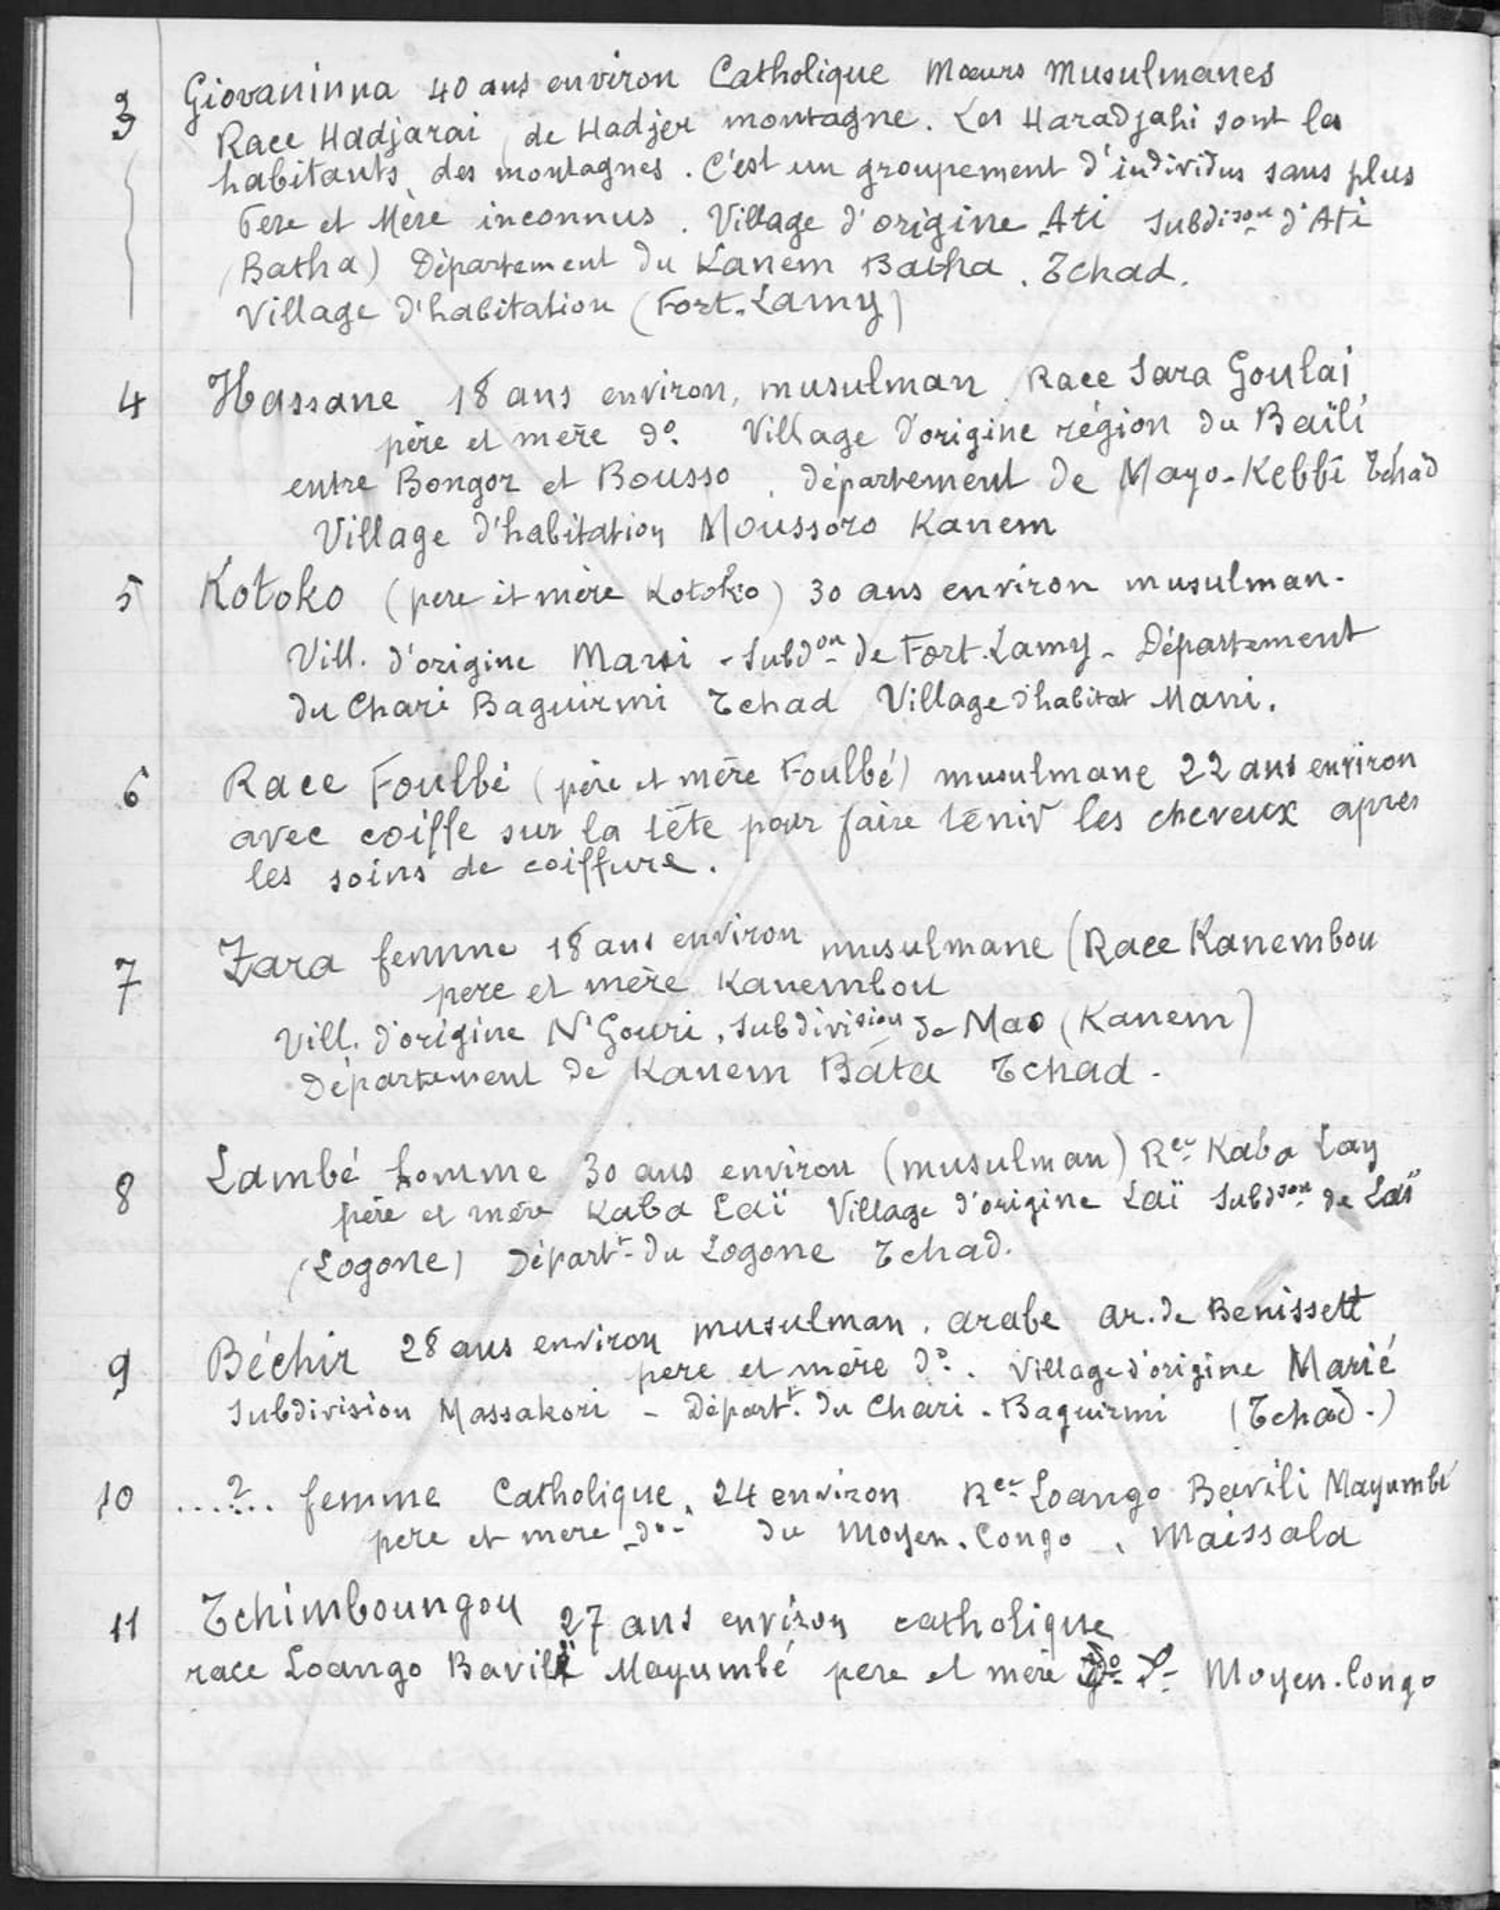 3 Giovaninna 40 ans environ Catholique Mœurs Musulmanes
Race Hadjarai, de Hadjer montagne. Les Haradjahi sont les
habitants des montagnes. C'est un groupement d'individus sans plus
Père et Mère inconnus. Village d'origine Ati Subdison d'Ati
(Batha) Département du Kanem Batha. Tchad.
Village d'habitation (Fort-Lamy)
4 Hassane 18 ans environ, musulman Race Sara Goulai
père et mère do. Village d'origine région du Baïli
entre Bongor et Bousso, département de Mayo-Kebbi Tchad
Village d'habitation Moussoro Kanem
5 Kotoko (pere et mère Kotoko) 30 ans environ musulman-
Vill. d'origine Mani - Subdon de Fort-Lamy - Département
du Chari Baguirmi Tchad Village d'habitat Mani.
6 Race Foulbé (père et mère Foulbé) musulmane 22 ans environ
avec coiffe sur la tête pour faire tenir les cheveux apres
les soins de coiffure.
7 Zara femme 18 ans environ musulmane (Race Kanembou
pere et mère Kanembou
Vill. d'origine N'Gouri, subdivision de Mao (Kanem)
Département de Kanem Bata Tchad-
8 Lambé homme 30 ans environ (musulman) Rce Kaba Lay
père et mère Kaba Laï Village d'origine Laï Subdson de Laï
(Logone) Départt du Logone Tchad.
9 Béchir 28 ans environ musulman. arabe ar. de Benissett
pere et mère do. Village d'origine Marié
Subdivision Massakori - Départt. du Chari-Baguirmi (Tchad-)
10 ...?.. femme Catholique, 24 environ Rce Loango Bavili Mayumbé
pere et mere do- du Moyen-Congo, Maissala
11 Tchimboungou 27 ans environ catholique
race Loango Bavili Mayumbé pere et mère do Moyen-Congo